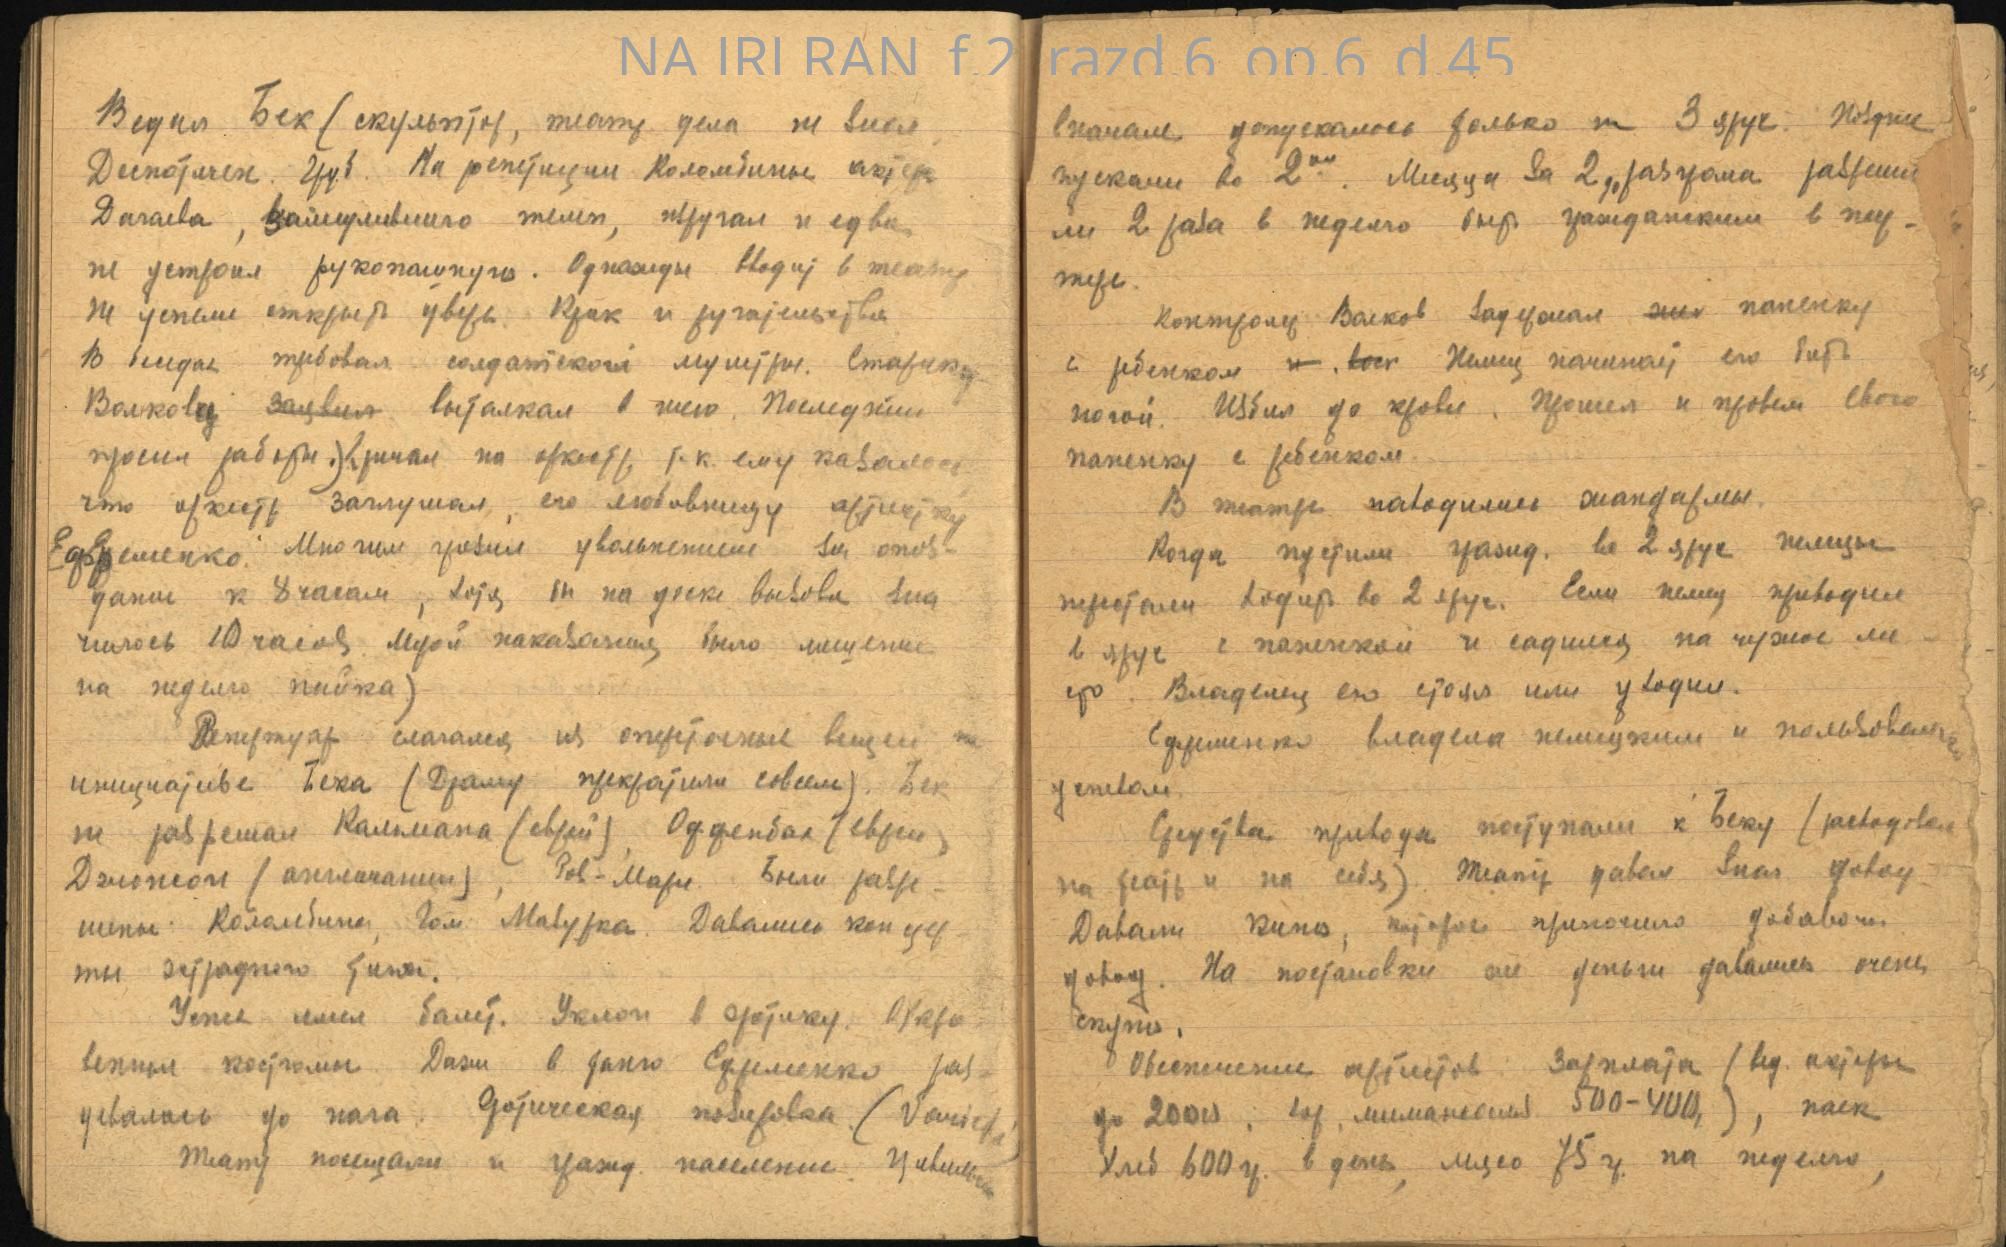 NA IRI RAN f.2 razd.6 op.6 d.45
Ведал Бек (скульптор, театр. дела не знал,
Деспотичен. Груб. На репетиции Коломбины актера
Дачаева, ругал и едва
не устроил рукопашную. Однажды входил в театр
Не успели открыть дверь. Крик и ругательства
В требовал солдатской муштры. Старика
Волкова вытолкал в шею. Последний
просил работы.) Кричал на оркестр, т.к. ему казалось
что оркестр заглушал, его любовницу артистку
Ефременко. Многим грозил увольнением за опоз-
дание к 8 часам, хотя на доске вызова зна
чилось 10 часов. Мерой наказания было лишение
на неделю пайка)
Репертуар слагался из опереточных вещей по
инициативе Бека (Драму прекратили совсем). Бек
не разрешал Кальмана (еврей), Оффенбах (еврей)
Джонсон (англичанин), Роз-Мари. Были разре-
шены Коломбина, Гол. Мазурка. Давались концер
ты эстрадного типа.
Успех имел балет. Уклон в эротику. Откро
венные костюмы. Даже в танго Ефременко раз-
девалась до нага. позировка. (Variete)
Театр посещали и гражд. население.
Вначале допускалось только на 3 ярус. Позднее
пускали во 2ой. Месяца за 2 до разгрома разреши
ли 2 раза в неделю быть гражданским в пар-
тере.
Контролер Волков задержал паненку
с ребенком Немец начинает его бить
ногой. Избил до крови. Прошел и провел свою
паненку с ребенком.
В театре находились жандармы.
Когда пустили гражд. во 2 ярус немцы
перестали ходить во 2 ярус. Если немец приходил
в ярус с паненкой и садился на чужое ме-
сто. Владелец его стоял или уходил.
Ефременко владела немецким и пользовалась
успехом.
Средства прихода поступали к Беку (расходовал
на театр и на себя). Театр давал доход
Давали кино, которое приносило добавочн.
доход. На постановки же деньги давались очень
скупо.
Обеспечение артистов: Зарплата (вед. актеры
до 2000, хор, 500-400,), паек
Хлеб 600 г. в день, мясо 75 г. на неделю,